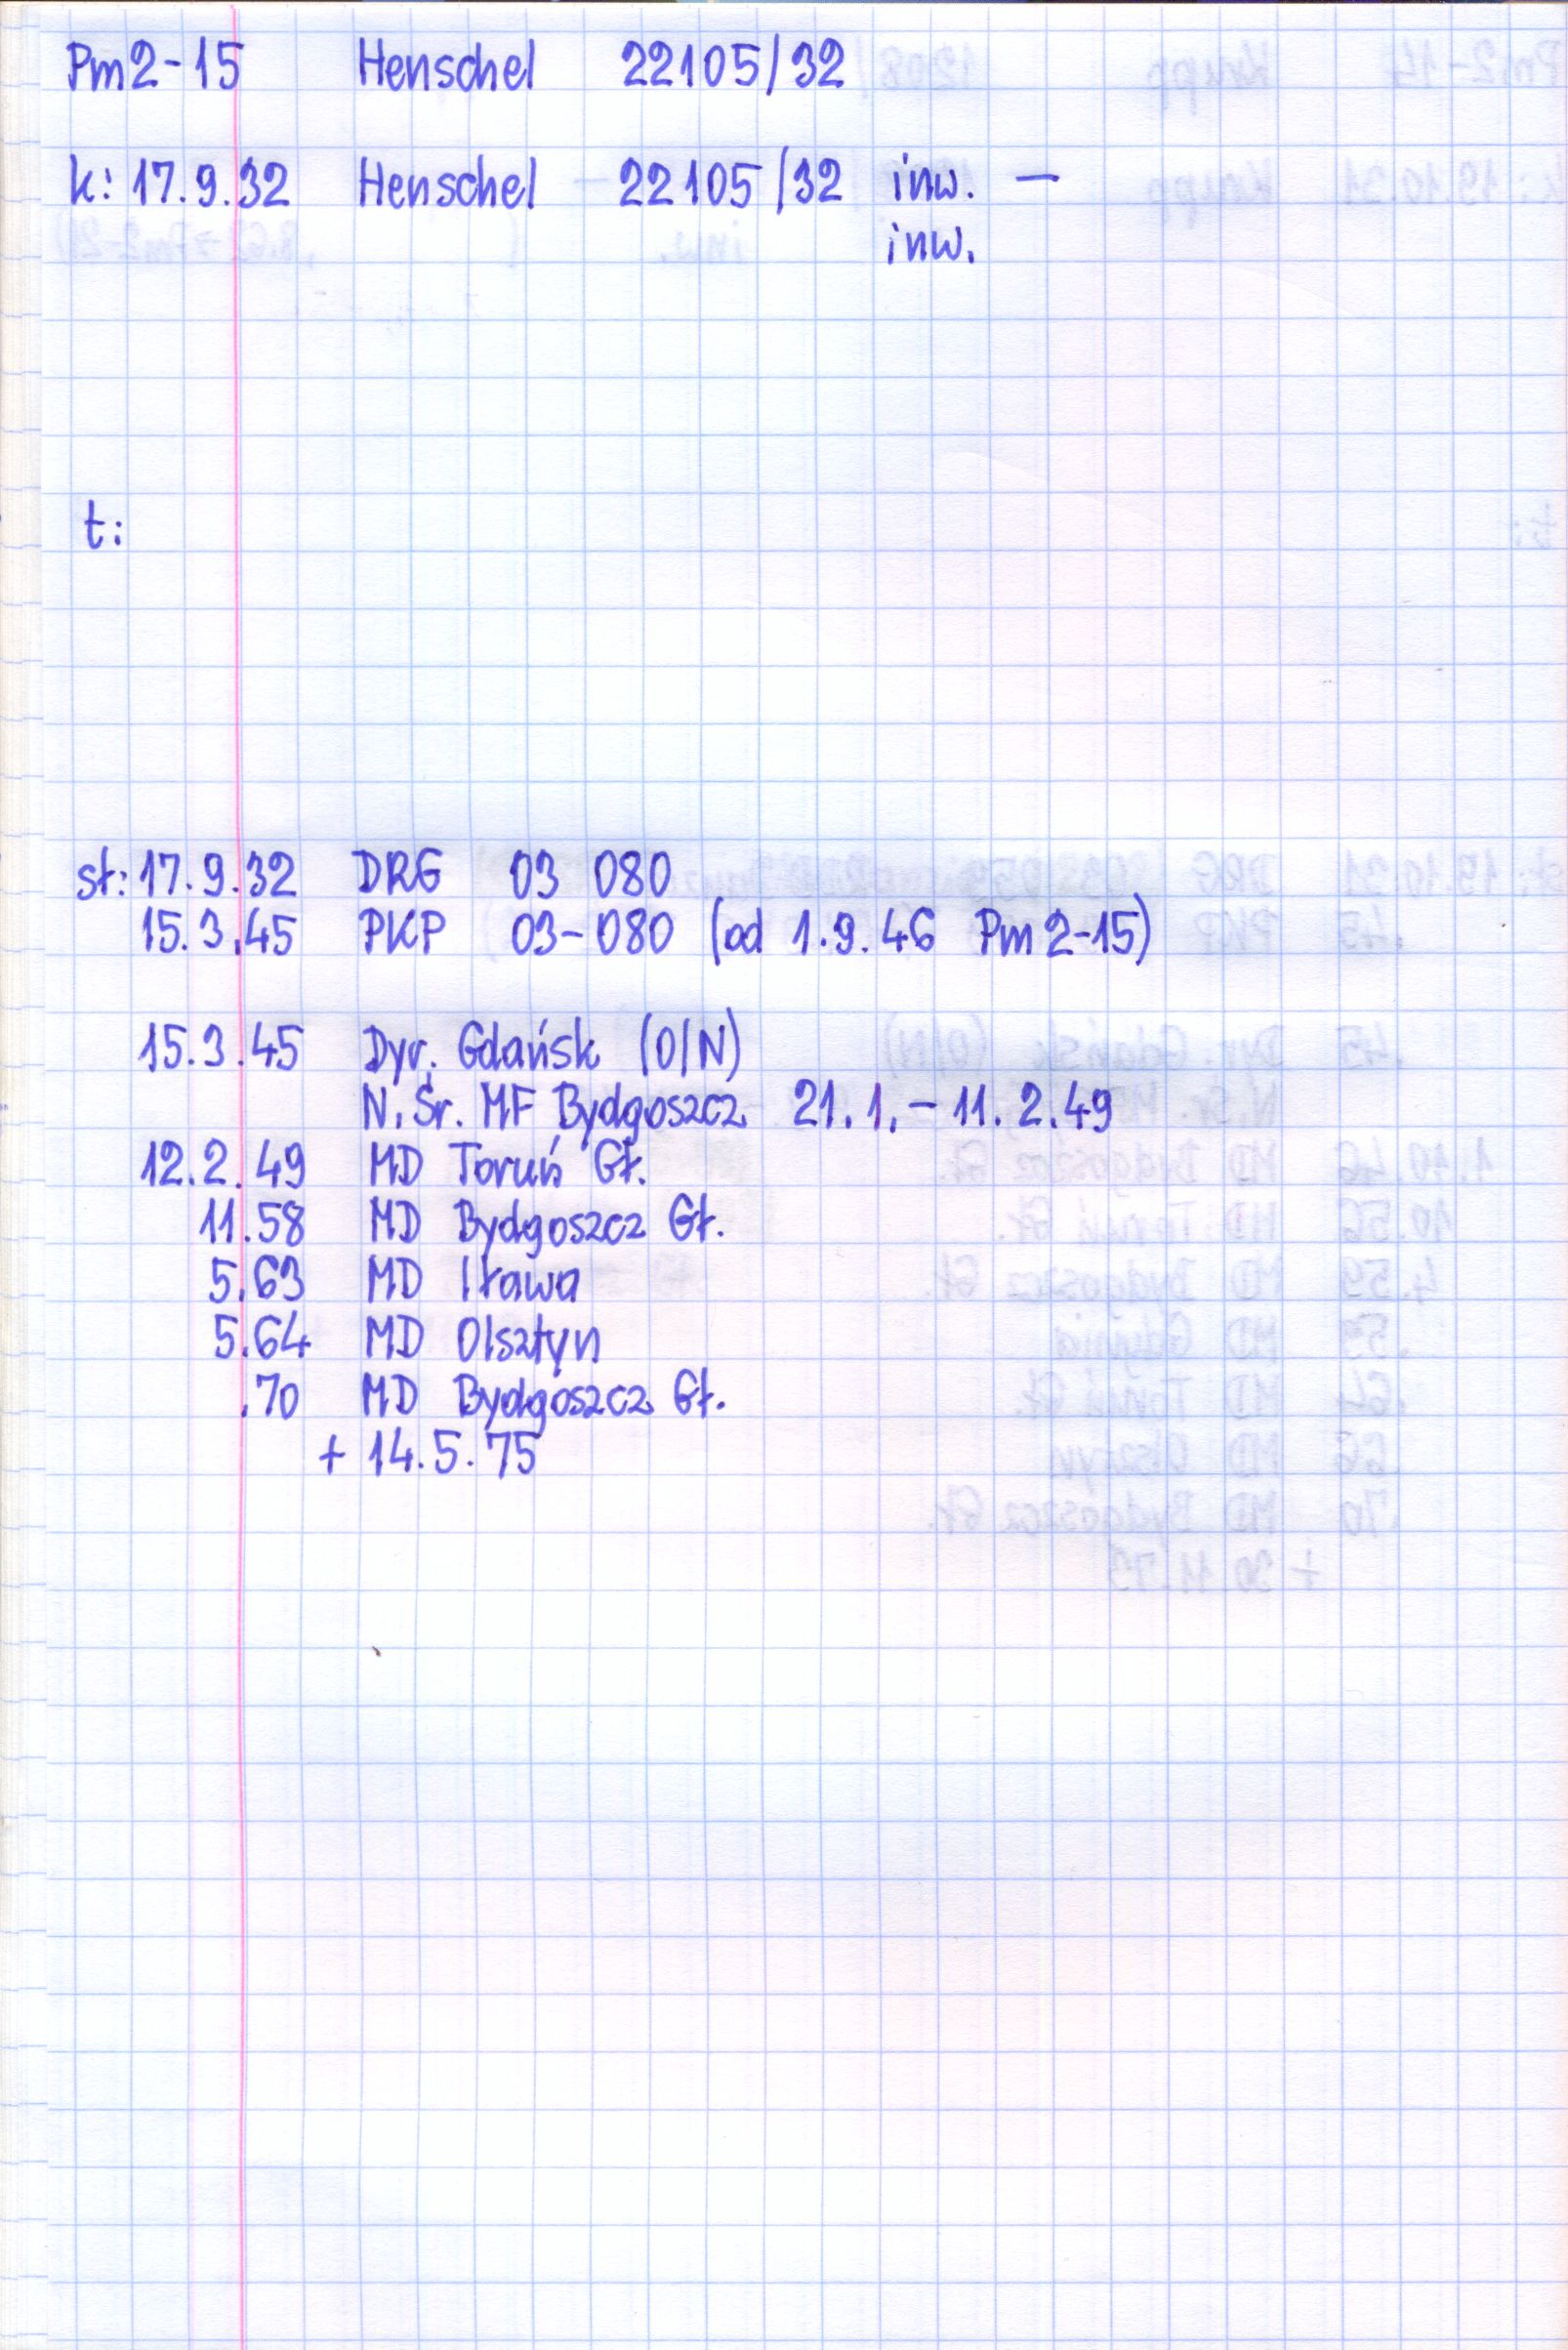 Pm2-15 Henschel 22105/32
k: 17.9.32 Henschel 22105/32 inw. —
inw.
t:
st: 17.9.32 DRG 03 080
15.3.45 PKP 03-080 (od 1.9.46 Pm2-15)
15.3.45 Dyr. Gdańsk (O/N)
N. Śr. MF Bydgoszcz 21.1. - 11.2.49
12.2.49 MD Toruń Gł.
11.58 MD Bydgoszcz Gł.
5.63 MD Iława
5.64 MD Olsztyn
.70 MD Bydgoszcz Gł.
+ 14.5.75